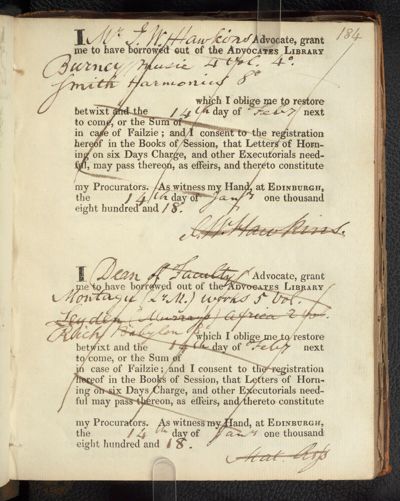 184
I Mr J. W. Hawkins Advocate, grant
me to have borrowed out of the ADVOCATES LIBRARY
Burney music 4 vol. 4o.
Smith Harmonics 8o
which I oblige me to restore
betwixt and the 14th day of Feby next
to come, or the Sum of
in case of Failzie; and I consent to the registration
hereof in the Books of Session, that Letters of Horn-
ing on six Days Charge, and other Executorials need-
ful, may pass thereon, as effeirs, and thereto constitute
my Procurators. As witness my Hand, at EDINBURGH,
the 14th day of Jany one thousand
eight hundred and 18.
J. W. Hawkins.
I Dean of Faculty Advocate, grant
me to have borrowed out of the ADVOCATES LIBRARY
Montagu (Lr. M.) works 5 Vol.
Leyden (Murrays) Africa 2 vo.
Rich Babylon
which I oblige me to restore
betwixt and the 14th day of Feby next
to come, or the Sum of
in case of Failzie; and I consent to the registration
hereof in the Books of Session, that Letters of Horn-
ing on six Days Charge, and other Executorials need-
ful may pass thereon, as effeirs, and thereto constitute
my Procurators. As witness my Hand, at EDINBURGH,
the 14th day of Jany one thousand
eight hundred and 18.